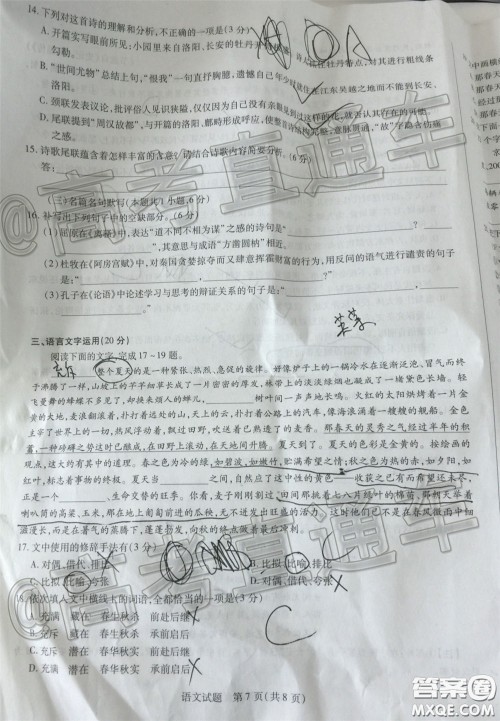 14.下列对这首诗的理解和分析,不正确的一项是(3分)
A.开篇实写眼前所见:小园里来自洛阳、长安的牡丹
牡丹特点,对其进行粗线条
勾勒。
B.“世间尤物”总结上句,“恨我”一句直抒胸臆,遗憾自己年少
江东吴越之地而不能到长安、
洛阳。
C.颈联发表议论,批评俗人见识狭隘,仅仅因为自己没有亲眼见到过这样的花,就否认其存在。
D.尾联提到“周汉故都”,与开篇的洛阳、
形成呼应,使整首诗结构完整,意脉贯通,“故”字饱含伤痛
之感。
15.诗歌尾联蕴含着怎样丰富的含意?请结合诗歌内容简要分析。(6分)
答:
(三)名篇名句默写(本题共1小题,6分)
16.补写出下列句子中的空缺部分。(6分)
(1)屈原在《离骚》中,表达“道不同不相为谋”之感的诗句是“
”,其意思与成语“方凿圆枘”相近。
(2)杜牧在《阿房宫赋》中,对秦国贪婪掠夺而又肆意挥霍财富的行为,用反问的语气进行谴责的句子
是:“
(3)孔子在《论语》中论述学习与思考的辩证关系的句子是:“
三、语言文字运用(20分)
阅读下面的文字,完成17~19题。
整个夏天的是一种紧张、热烈、急促的旋律。好像炉子上的一锅冷水在逐渐泛泡、冒气而终
于沸腾了一样,山坡上的芊芊细草长成了一片密密的厚发,林带上的淡淡绿烟也凝成了一堵黛色长墙。轻
飞曼舞的蜂蝶不多见了,却换来烦人的蝉儿,
树叶间一声声地长鸣。火红的太阳烘烤着一片金
黄的大地,麦浪翻滚着,扑打着远处的山,天上的云,扑打着公路上的汽车,像海浪涌着一艘艘的舰船。金色
主宰了世界上的一切,热风浮动着,飘过田野,吹送着已熟透了的麦香。那春天的灵秀之气经过半年的积
蓄,这时已酿成一种磅礴之势,在田野上滚动,在天地间升腾。夏天到了。夏天的色彩是金黄的。按绘画的
观点,这大约有其中的道理。春之色为冷的绿,如碧波,如嫩竹,贮满希望之情;秋之色为热的赤,如夕阳,如
红叶,标志着事物的终极。夏天当
之间,自然应了这中性的黄色——收获之已有而希望还未尽,
正是一个
、生命交替的旺季。你看,麦子刚刚割过,田间那挑着七八片绿叶的棉苗,那朝天举着
喇叭筒的高粱、玉米,那在地上匍匐前进的瓜秧,无不迸发出旺盛的活力。这时它们已不是在春风微雨中细
滋漫长,而是在暑气的蒸腾下,蓬蓬勃发,向秋的终点做着最后冲刺。
17.文中使用的修辞手法有(3分)
A.对偶、借代、排
B.比拟、比喻、排比
C.比拟、比喻、夸张
D.对偶、借代、夸张
18.依次填入文中横线上的词语,全都恰当的一项是(3分)
A.充满 藏在 春生秋杀 前赴后继
B.充斥 潜在 春生秋杀 承前启后
C.充斥 潜在 春华秋实 前赴后继
D.充满 潜在 春华秋实 承前启后
语文试题 第7页(共8页)
@高考直通车
答案圈
MXQE.COM